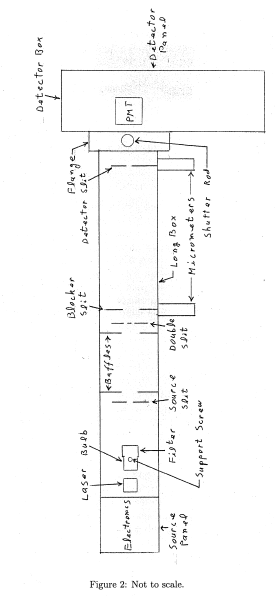 Detector Box
Detector
Panel
PMT
Flange
Detector Slit
Shutter Rod
Micrometers
Long Box
Blocker
Slit
Double
Slit
Baffles
Source
Slit
Bulb
Filter
Laser
Support Screw
Electronics
Source
Panel
Figure 2: Not to scale.